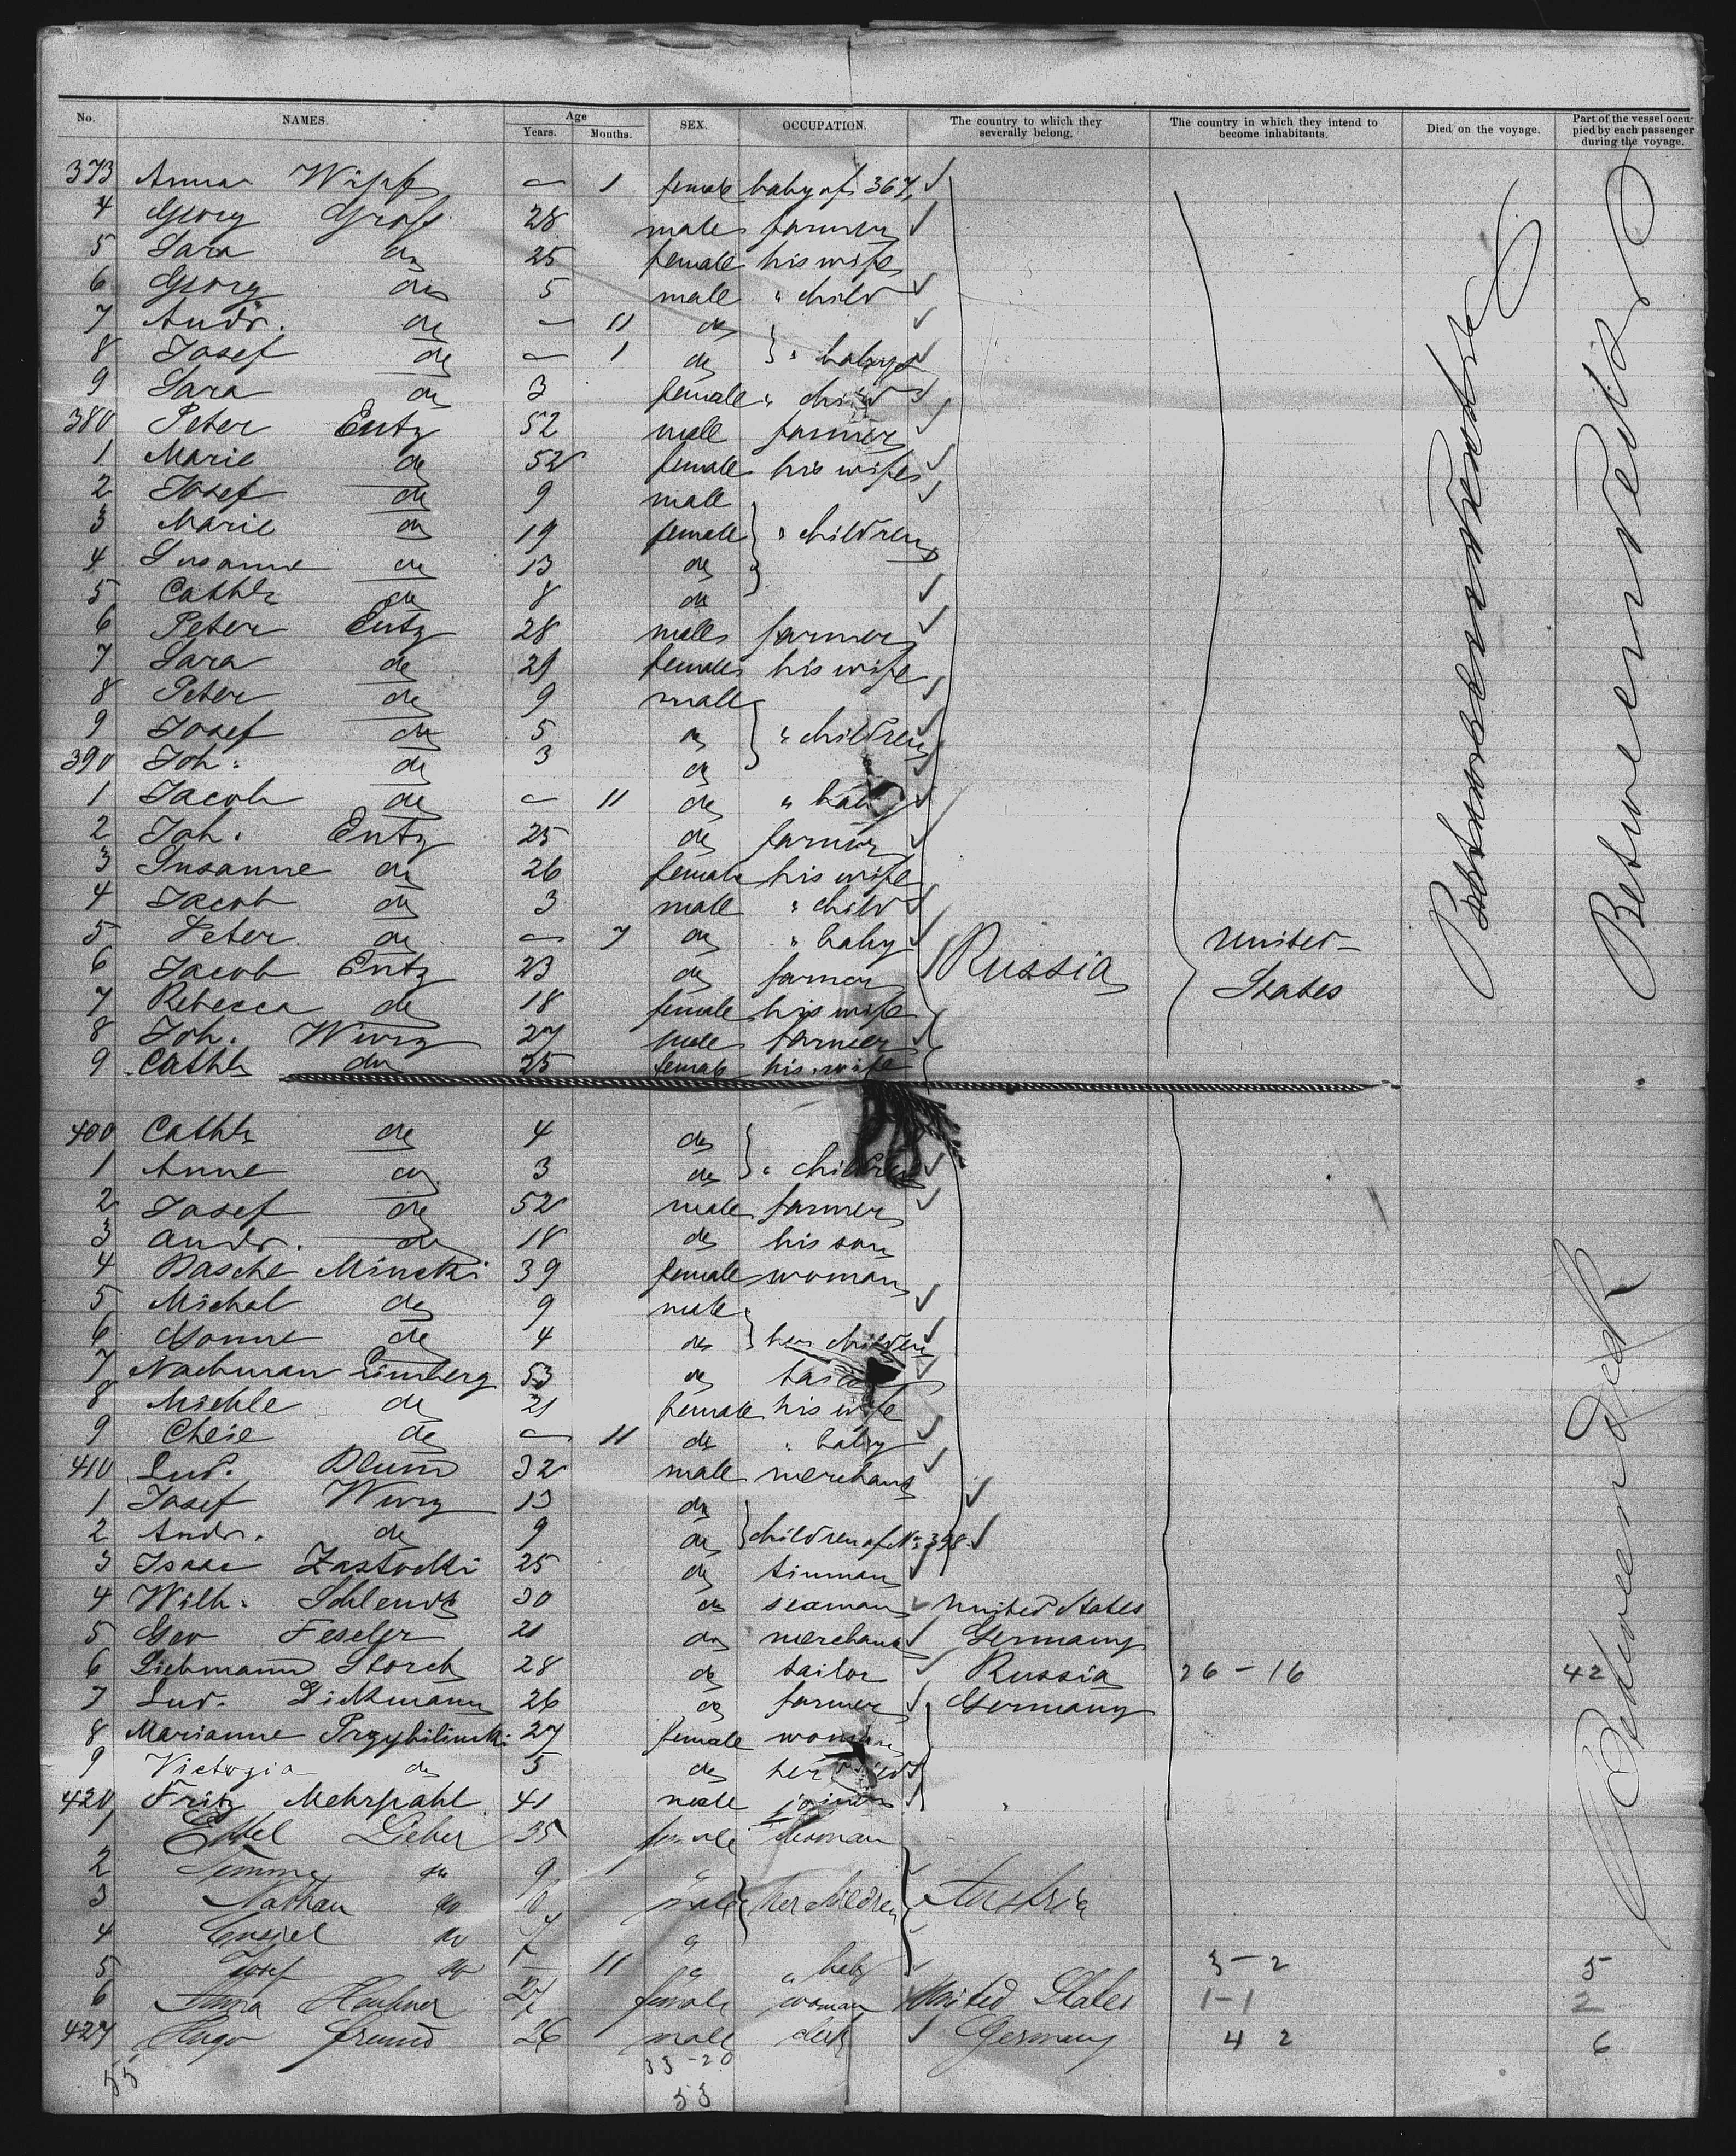 No. NAMES. Age Years. Months. SEX. OCCUPATION. The country to which they severally belong. The country in which they intend to become inhabitants. Died on the voyage. Part of the vessel occupied by each passenger during the voyage.
373 Anna Wipf — 1 female baby of 367
4 Georg Gross 28 male farmer
5 Sara do 25 female his wife
6 Georg do 5 male " child
7 Andr. do — 11 do
8 Josef do — 1 do " babys
9 Sara do 3 female " child
380 Peter Entz 52 male farmer
1 Marie do 52 female his wife
2 Josef do 9 male
3 Marie do 19 female " children
4 Susanne do 13 do
5 Cathr do 8 do
6 Peter Entz 28 male farmer
7 Sara do 29 female his wife
8 Peter do 9 male
9 Josef do 5 do " children
390 Joh. do 3 do
1 Jacob do — 11 do " baby
2 Joh. Entz 25 do farmer
3 Susanne do 26 female his wife
4 Jacob do 3 male " child
5 Peter do — 7 do " baby
6 Jacob Entz 23 do farmer Russia United States
7 Rebecca do 18 female his wife
8 Joh. Wurz 27 male farmer
9 Cathr do 25 female his wife
400 Cathr do 4 do
1 Anne do 3 do " children
2 Josef do 52 male farmer
3 Andr. do 18 do his son
4 Dasche Minski 39 female woman
5 Michal do 9 male
6 do 4 do her children
7 Nachman 53 do
8 Michle do 21 female his wife
9 Cheie do — 11 do " baby
410 Lud. Blum 32 male merchant
1 Josef Wurz 13 do
2 Andr. do 9 do children of No. 398
3 Isaac Zastocki 25 do tinman
4 Wilh. Schlendt 30 do seaman United States
5 Geo Feseler 21 do merchant Germany
6 Liebmann Storch 28 do tailor Russia 26 - 16 42
7 Lud. Dickmann 26 do farmer Germany
8 Marianne Przybilinski 27 female woman
9 Victoria do 5 do her child
420 Fritz Mehrpahl 41 male joiner
1 Ettel Lieber 35 female woman
2 do 9 "
3 Nathan do male her children Austria
4 do "
5 Josef do 11 " " baby 3 - 2 5
6 Anna female woman United States 1 - 1 2
427 Hugo Freund 26 male clerk Germany 4 2 6
55 33 - 20
53
Between Deck